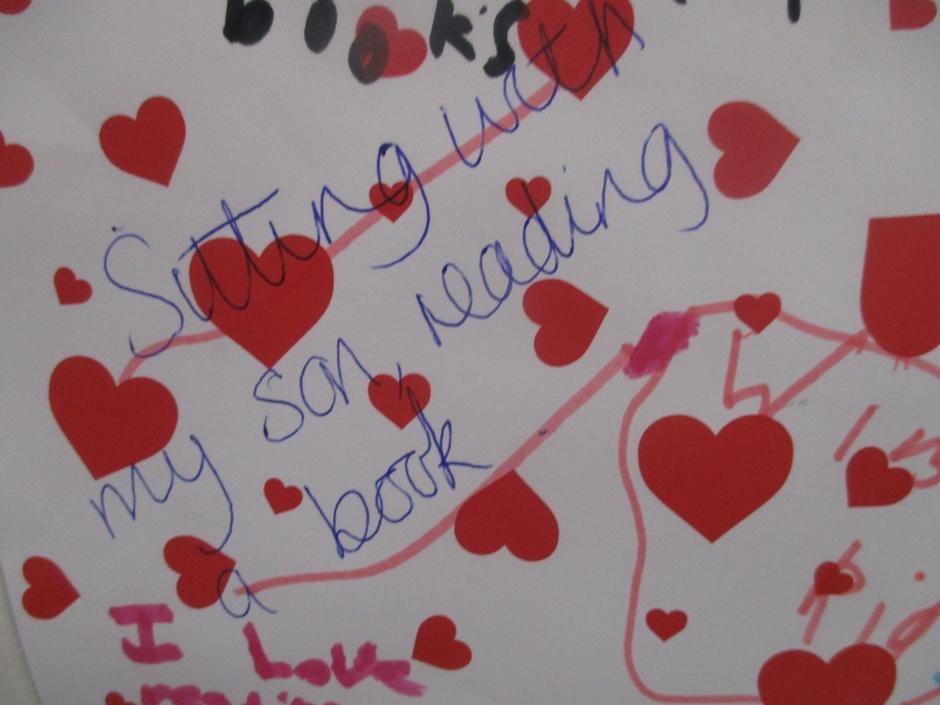 books
Sitting with
my son, reading
a book
I Love